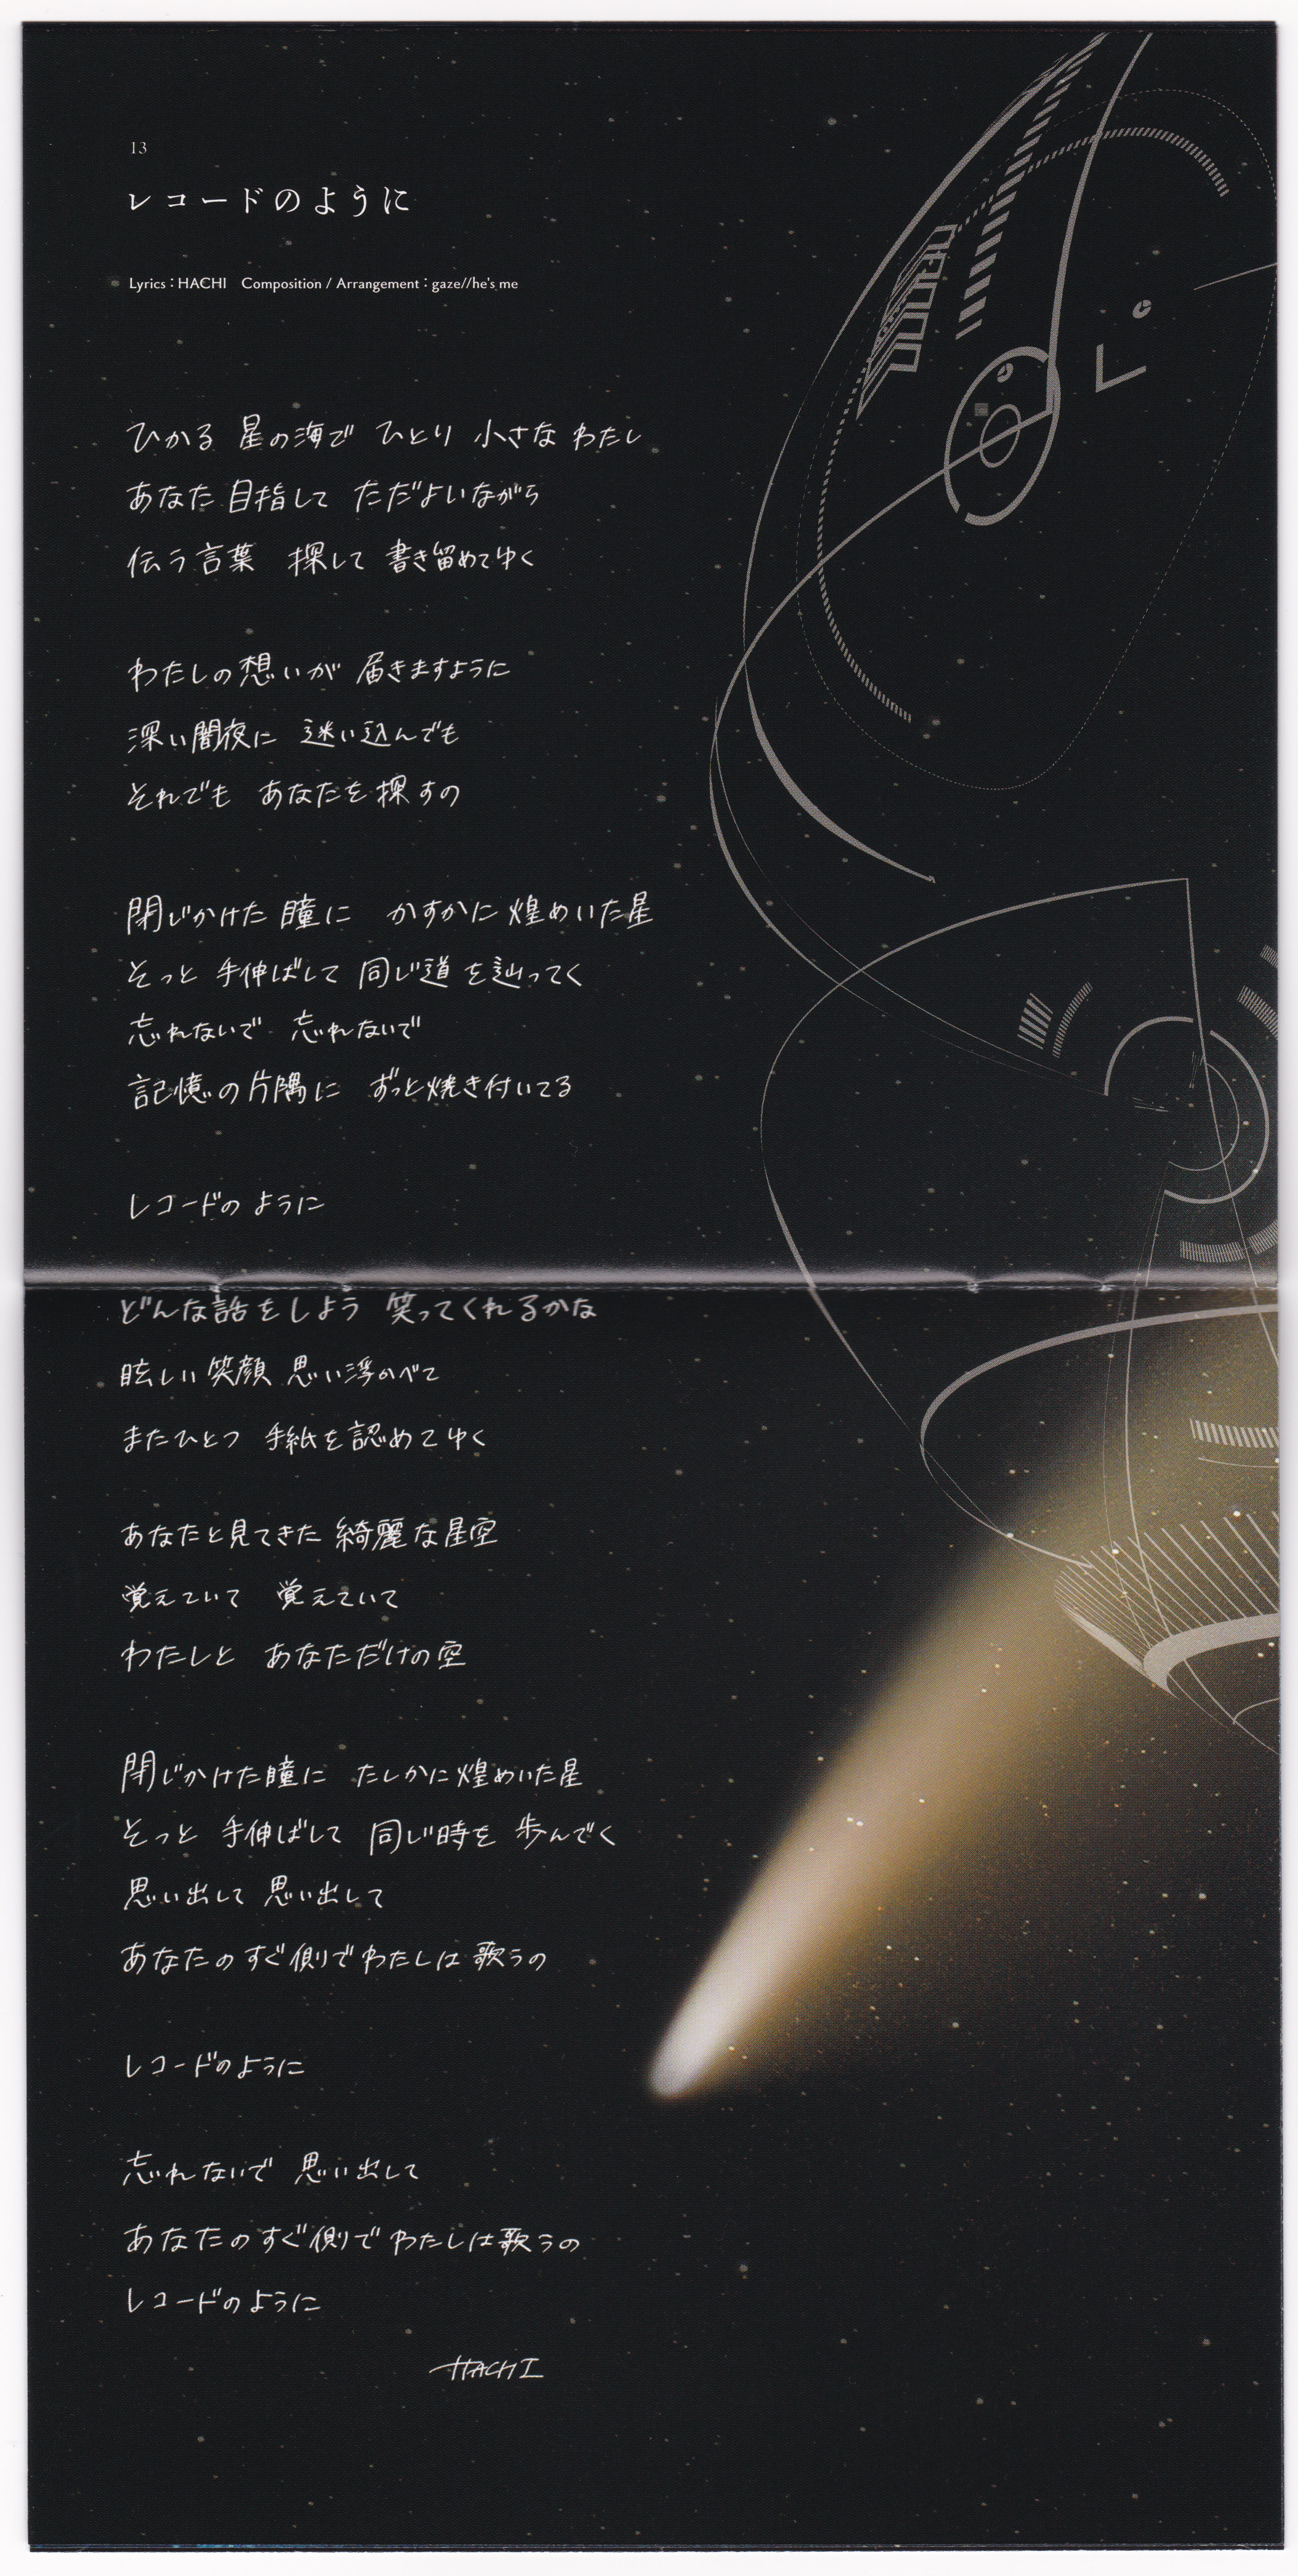 13
レコードのように
Lyrics：HACHI　Composition / Arrangement：gaze//he's me
ひかる 星の海で ひとり 小さな わたし
あなた 目指して ただよいながら
伝う言葉　探して 書き留めてゆく
わたしの想いが 届きますように
深い闇夜に　迷い込んでも
それでも　あなたを探すの
閉じかけた 瞳に　かすかに煌めいた星
そっと 手伸ばして 同じ道を辿ってく
忘れないで　忘れないで
記憶の片隅に　ずっと焼き付いてる
レコードのように
どんな話をしよう　笑ってくれるかな
眩しい笑顔 思い浮かべて
またひとつ　手紙を認めてゆく
あなたと見てきた 綺麗な星空
覚えていて　覚えていて
わたしと　あなただけの空
閉じかけた瞳に　たしかに煌めいた星
そっと　手伸ばして　同じ時を 歩んでく
思い出して 思い出して
あなたのすぐ側でわたしは歌うの
レコードのように
忘れないで　思い出して
あなたのすぐ側でわたしは歌うの
レコードのように
HACHI